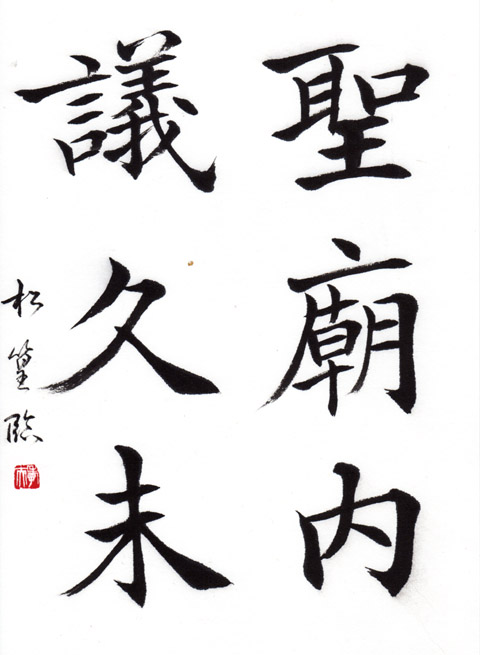 聖廟内
議久未
松篁臨